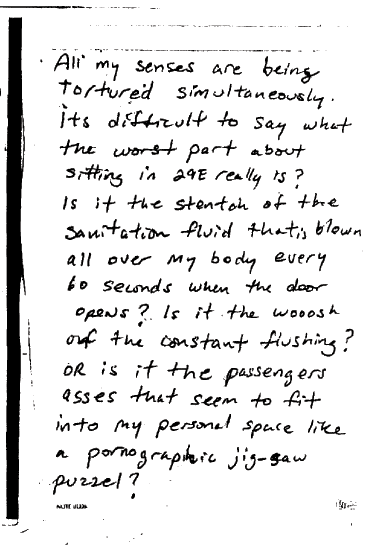 All my senses are being
tortured simultaneously.
its difficult to say what
the worst part about
sitting in 29E really is?
Is it the stentch of the
sanitation fluid that,s blown
all over my body every
60 seconds when the door
opens? Is it the wooosh
of the constant flushing?
OR is it the passengers
asses that seem to fit
into my personal space like
a pornographic jig-saw
puzzel?